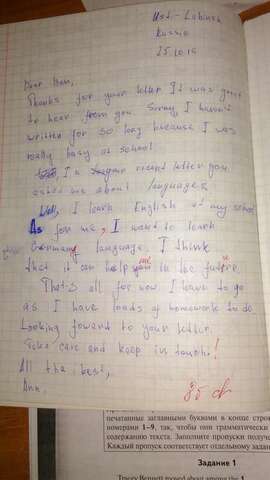 Ust-Labinsk
Russia
25.10.16
Dear Ben,
Thanks for your letter. It was great
to hear from you. Sorry, I haven't
written for so long because I was
really busy at school
In your recent letter you
asked me about languages.
Well, I learn English at my school
As for me, I want to learn
Germany language. I think
that it can help you in the future.
That's all for now I have to go
as I have loads of homework to do
Looking foward to your letter.
Take care and keep in touch!
All the best,
Ann.
8б
печатанные заглавными буквами в конце строк
номерами 1–9, так, чтобы они грамматически
содержанию текста. Заполните пропуски получ
Каждый пропуск соответствует отдельному задан
Задание 1
Tracey Bennett moved about among the